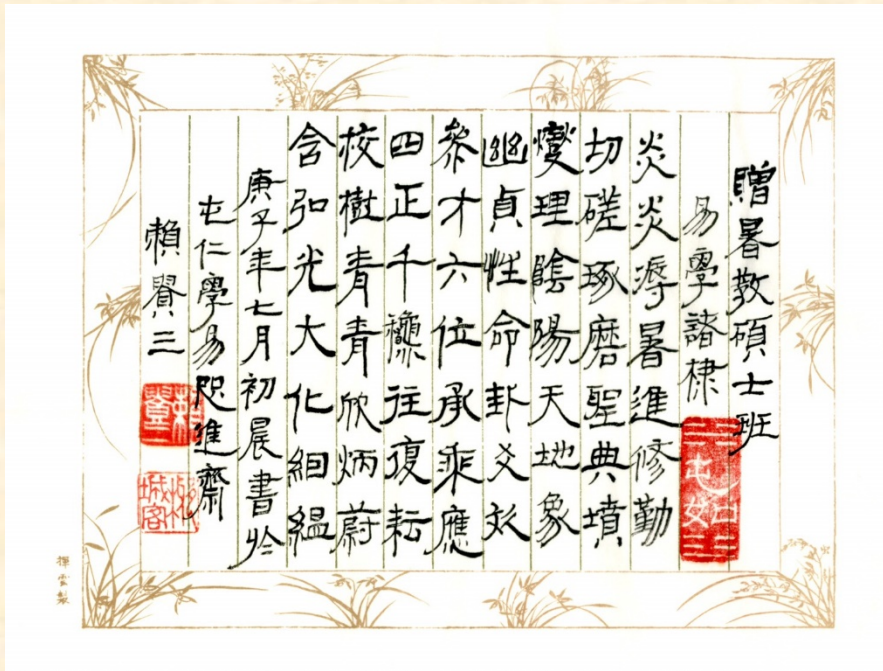 贈暑教碩士班
易學諸棣
炎炎溽暑進修勤
切磋琢磨聖典墳
燮理陰陽天地象
幽貞性命卦爻
叅才六位承乘應
四正千龝往復耘
校樹青青欣炳蔚
含弘光大化絪縕
庚子年七月初晨書於
屯仁學易咫進齋
賴貴三